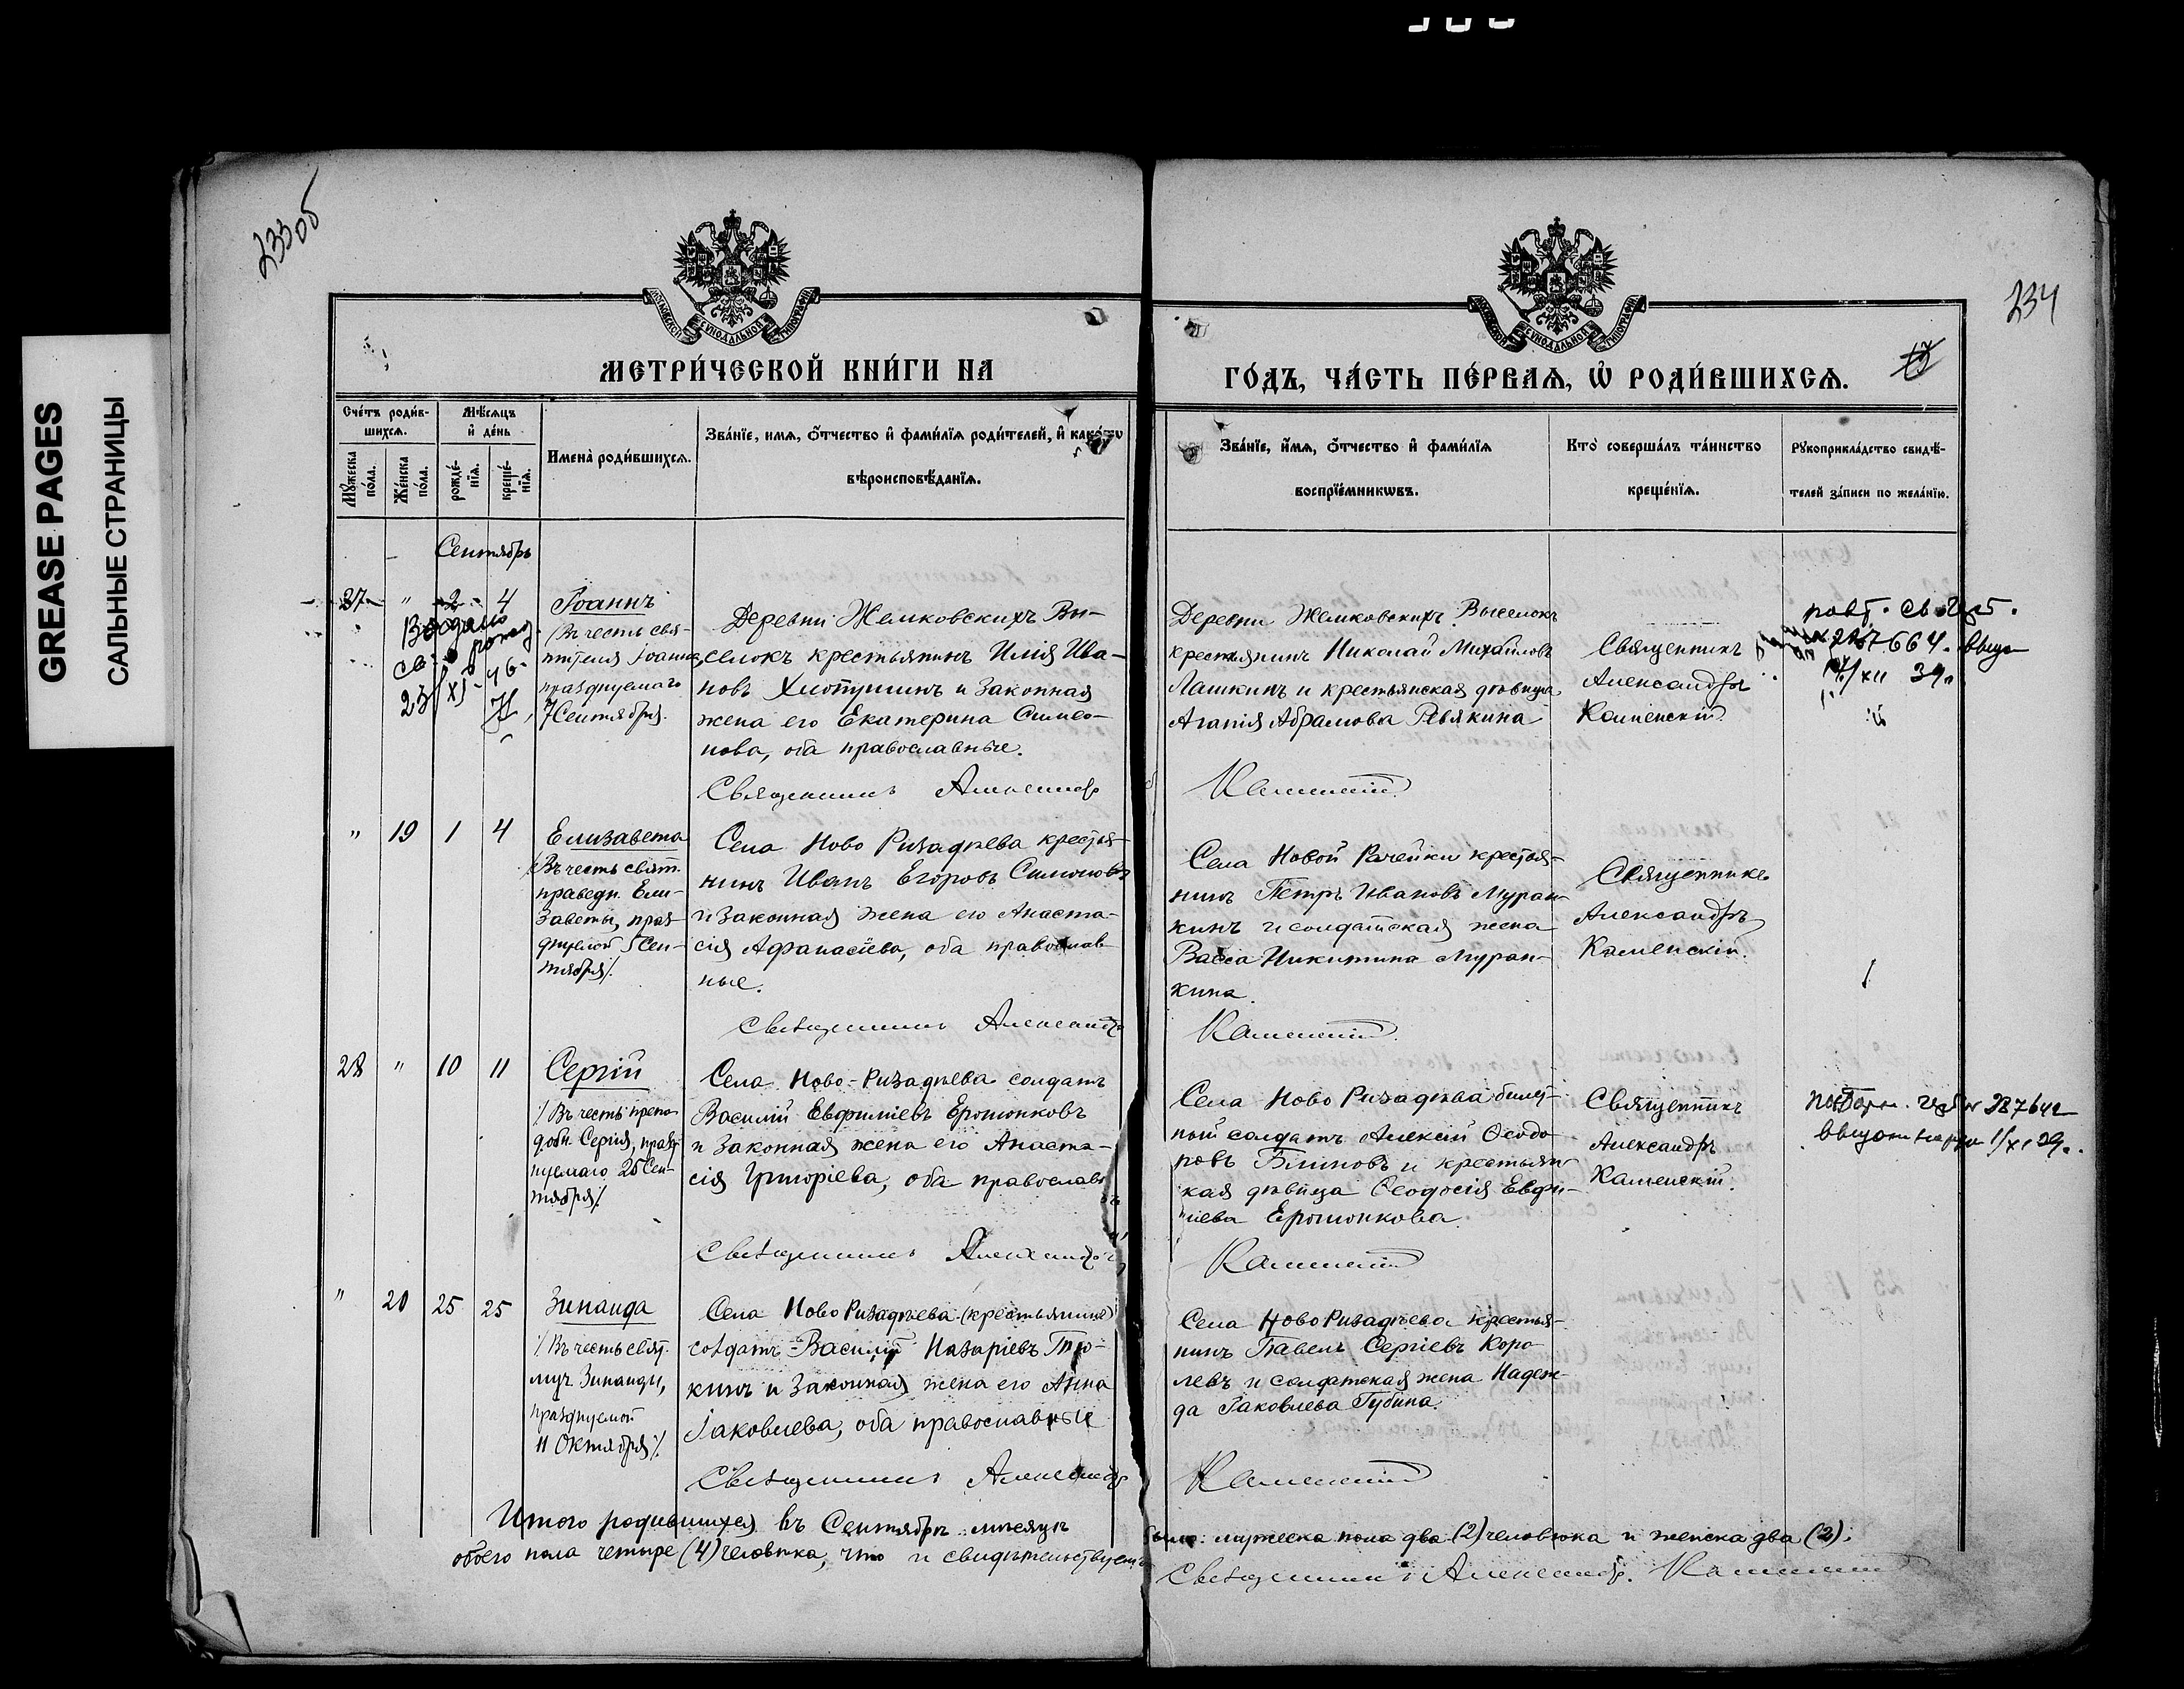 233об
234
GREASE PAGES
САЛЬНЫЕ СТРАНИЦЫ
МОСКОВСКОЙ СѴНОДАЛЬНОЙ ТИПОГРАФІИ
МЕТРИ́ЧЕСКОЙ КНИ́ГИ НА
Сче́тъ роди́в-
шихсѧ.
Мѣ́сѧцъ
и҆ де́нь
Мꙋ́жеска
по́ла.
Же́нска
по́ла.
рожде́-
нїѧ.
креще́-
нїѧ.
Имена̀ роди́вшихсѧ.
Зва́нїе, имѧ, ѻ҆́тчество и҆ фами́лїѧ роди́телей, и҆ како́гѡ
вѣроисповѣ́данїѧ.
Сентябрь
27 " 2 4
Іоаннъ
(Въ честь свя-
тителя Іоанна,
празднуемаго
7 Сентября.
Деревни Жемковскихъ Вы-
селокъ крестьянинъ Илія Ива-
новъ Хлопушинъ и законная
жена его Екатерина Симео-
нова, оба православные.
Священникъ Александръ
23/XI-46-
" 19 1 4
Елизавета
(Въ честь свят.
праведн. Ели-
заветы, праз-
днуемой 5 Сен-
тября).
Села Ново Ризадѣева крестья-
нинъ Иванъ Егоровъ Симоновъ
и законная жена его Анаста-
сія Афанасіева, оба православ-
ные.
Священникъ Александръ
28 " 10 11
Сергій
(Въ честь препо-
добн. Сергія, празд-
нуемаго 25 Сен-
тября).
Села Ново-Ризадѣева солдатъ
Василій Евфиміевъ Ерошонковъ
и законная жена его Анаста-
сія Григоріева, оба православ
Священникъ Александръ
" 20 25 25
Зинаида
(Въ честь свят.
муч. Зинаиды,
празднуемой
11 Октября).
Села Ново Ризадѣева (крестьянинъ)
солдатъ Василій Назаріевъ
кинъ и законная жена его Анна
Іаковлева, оба православные
Священникъ Александръ
Итого родившихся въ Сентябрѣ мѣсяцѣ
обоего пола четыре (4) человѣка, что и свидѣтельствуемъ
ГО́ДЪ, ЧА́СТЬ ПЕ́РВАѦ, Ѡ҆ РОДИ́ВШИХСѦ.
Зва́нїе, и҆́мѧ, ѻ҆́тчество и҆ фами́лїѧ
воспрїе́мникѡвъ.
Кто̀ соверша́лъ та́инство
креще́нїѧ.
Рꙋкоприкла́дство свидѣ́-
телей за́писи по жела́нїю.
Деревни Жемковскихъ Выселокъ
крестьянинъ Николай Михайловъ
Лашкинъ и крестьянская дѣвица
Агапія Абрамова Ревякина
Каменскій
Священникъ
Александръ
Каменскій.
Села Новой Рачейки крестья-
нинъ Петръ Ивановъ Муран-
кинъ и солдатская жена
Васса Никитина Муран-
кина.
Каменскій
Священникъ
Александръ
Каменскій.
Села Ново Ризадѣева билет-
ный солдатъ Алексій Ѳеодо-
ровъ Блиновъ и крестьян-
кая дѣвица Ѳеодосія Евфи-
міева Ерошонкова.
Каменскій
Священникъ
Александръ
Каменскій.
Села Ново Ризадѣева крестья-
нинъ Павелъ Сергіевъ Коро-
левъ и солдатская жена Надеж-
да Іаковлева Губина.
Каменскій
было: мужеска пола два (2) человѣка и женска два (2).
Священникъ Александръ Каменскій